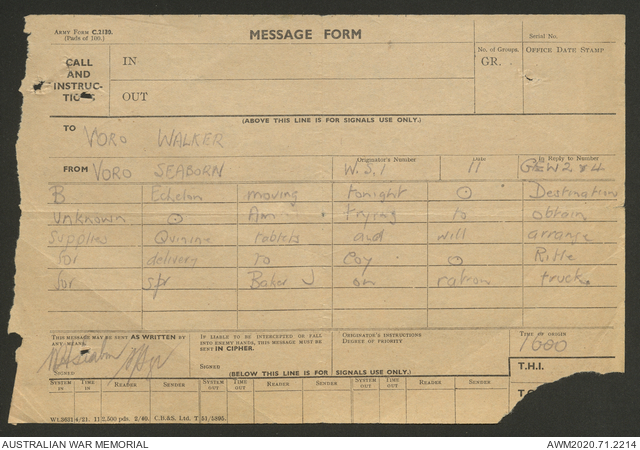 ARMY FORM C.2128.
(Pads of 100.)
MESSAGE FORM
Serial No.
CALL
AND
INSTRUC-
TIONS
IN
OUT
No. of Groups.
GR.
OFFICE DATE STAMP
(ABOVE THIS LINE IS FOR SIGNALS USE ONLY.)
TO VORO WALKER
FROM VORO SEABORN
Originator's Number
W.S.1
Date
11
In Reply to Number
B Echelon moving tonight ⊙ Destination
unknown ⊙ Am trying to obtain
supplies Quinine tablets and will arrange
for delivery to Coy ⊙ Rifle
for spr Baker J on ration truck.
THIS MESSAGE MAY BE SENT AS WRITTEN BY
ANY MEANS.
SIGNED
IF LIABLE TO BE INTERCEPTED OR FALL
INTO ENEMY HANDS, THIS MESSAGE MUST BE
SENT IN CIPHER.
SIGNED
ORIGINATOR'S INSTRUCTIONS
DEGREE OF PRIORITY
TIME OF ORIGIN
1600
T.H.I.
(BELOW THIS LINE IS FOR SIGNALS USE ONLY.)
SYSTEM IN TIME IN READER SENDER SYSTEM OUT TIME OUT READER SENDER SYSTEM OUT TIME OUT READER SENDER
AUSTRALIAN WAR MEMORIAL
AWM2020.71.2214